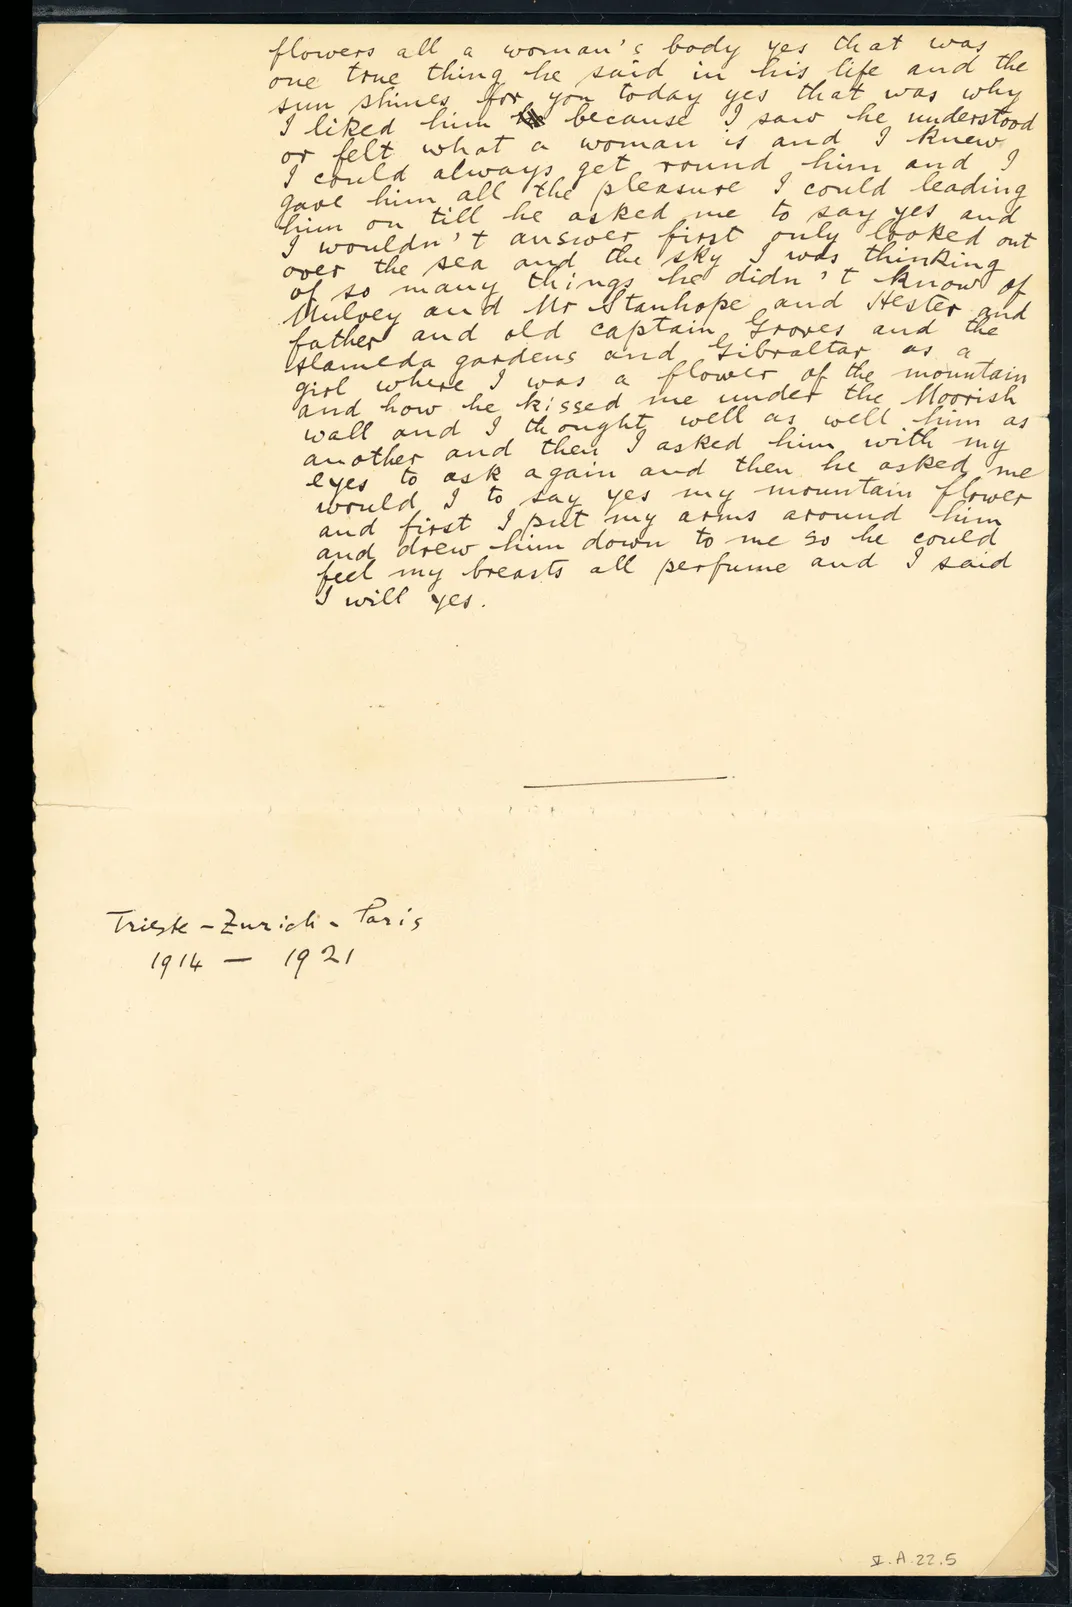 flowers all a woman's body yes that was
one true thing he said in his life and the
sun shines for you today yes that was why
I liked him because I saw he understood
or felt what a woman is and I knew
I could always get round him and I
gave him all the pleasure I could leading
him on till he asked me to say yes and
I wouldn't answer first only looked out
over the sea and the sky I was thinking
of so many things he didn't know of
Mulvey and Mr Stanhope and Hester and
father and old captain Groves and the
Alameda gardens and Gibraltar as a
girl where I was a flower of the mountain
and how he kissed me under the Moorish
wall and I thought well as well him as
another and then I asked him with my
eyes to ask again and then he asked me
would I to say yes my mountain flower
and first I put my arms around him
and drew him down to me so he could
feel my breasts all perfume and I said
I will yes.
Trieste - Zurich - Paris
1914 — 1921
V.A.22.5